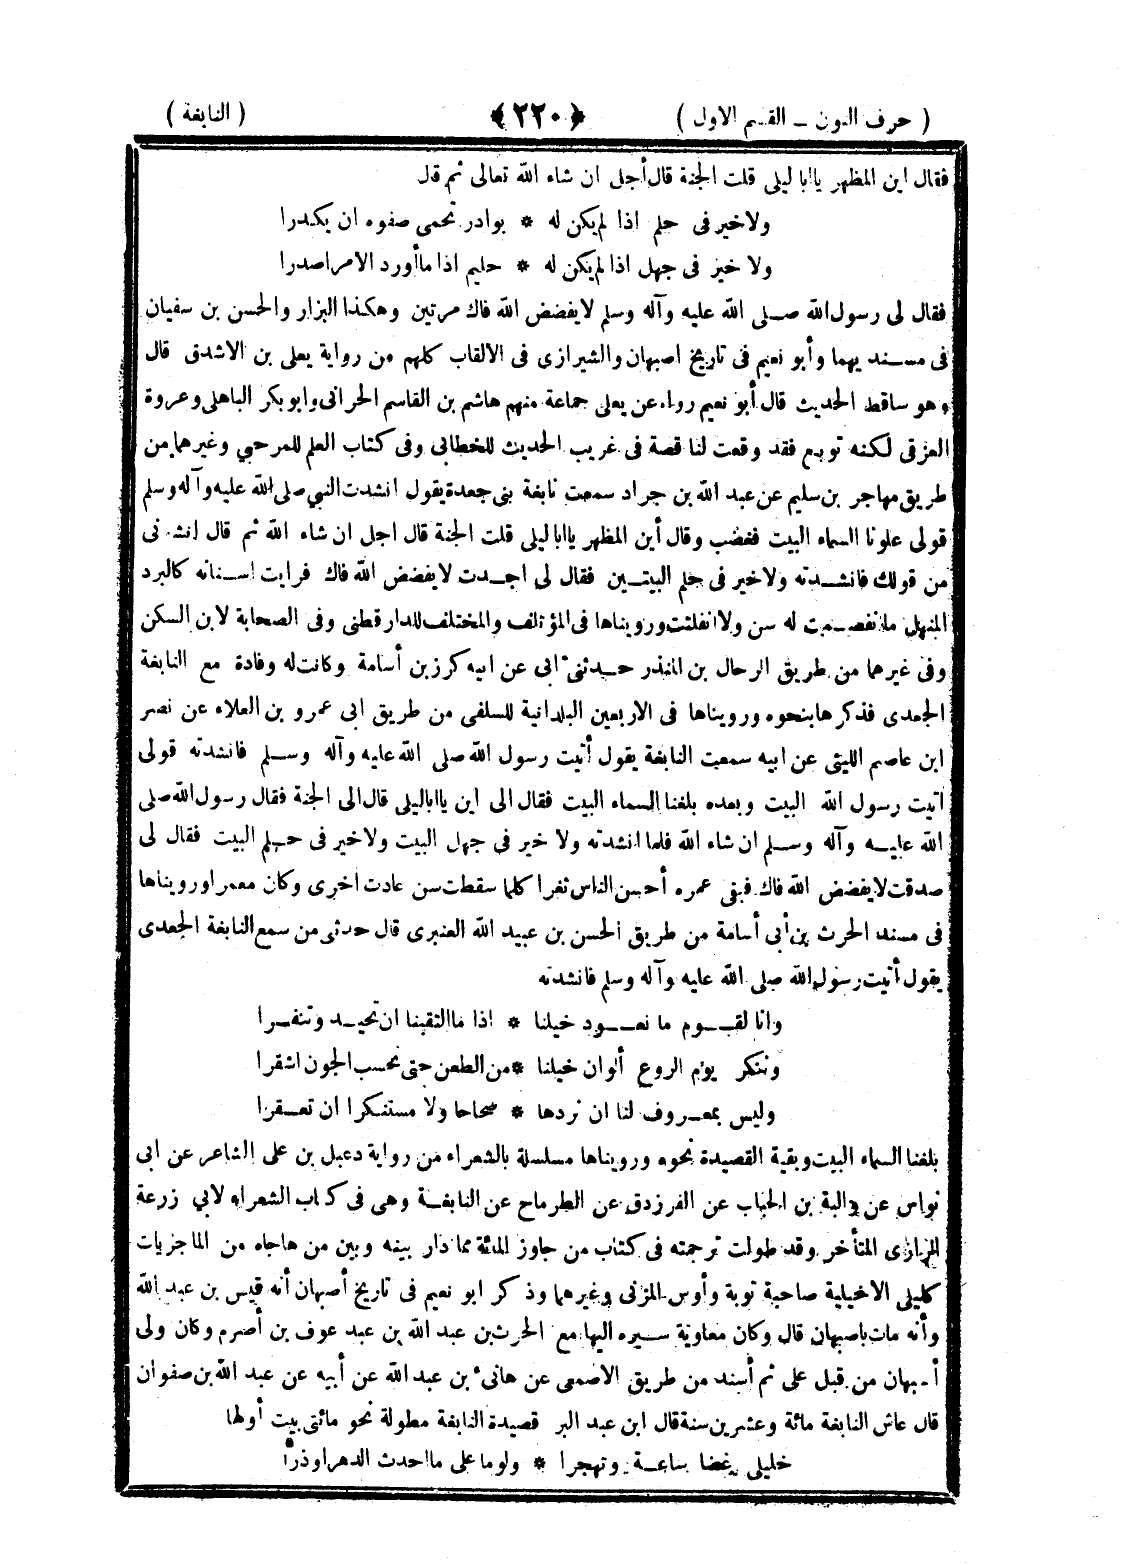 ( حرف النون ــ القسم الاول ) ﴿٢٢٠﴾ ( النابغة )
فقال اين المظهر ياابا ليلى قلت الجنة قال أجل ان شاء الله تعالى ثم قال
ولاخير فى حلم اذا لم يكن له * بوادر تحمى صفوه ان يكدرا
ولا خير فى جهل اذا لم يكن له * حليم اذا ما أورد الامر اصدرا
فقال لى رسول الله صلى الله عليه وآله وسلم لا يفضض الله فاك مرتين وهكذا البزار والحسن بن سفيان
فى مسنديهما وأبو نعيم فى تاريخ اصبهان والشيرازى فى الالقاب كلهم من رواية يعلى بن الاشدق قال
وهو ساقط الحديث قال أبو نعيم رواه عن يعلى جماعة منهم هاشم بن القاسم الحرانى وابو بكر الباهلى وعروة
العزقى لكنه توبع فقد وقعت لنا قصة فى غريب الحديث للخطابى وفى كتاب العلم للمرحبي وغيرهما من
طريق مهاجر بن سليم عن عبد الله بن جراد سمعت نابغة بنى جعدة يقول انشدت النبي صلى الله عليه وآله وسلم
قولى علونا السماء البيت فغضب وقال أين المظهر ياابا ليلى قلت الجنة قال اجل ان شاء الله ثم قال انشدنى
من قولك فانشدته ولاخير فى حلم البيتين فقال لى اجدت لا يفضض الله فاك فرايت اسنانه كالبرد
المنهل ما انفصمت له سن ولا انفلتت ورويناها فى المؤتلف والمختلف للدارقطنى وفى الصحابة لابن السكن
وفى غيرهما من طريق الرحال بن المنذر حدثنى ابى عن ابيه كرز بن أسامة وكانت له وفادة مع النابغة
الجعدى فذكرها بنحوه ورويناها فى الاربعين البلدانية للسلفى من طريق ابى عمرو بن العلاء عن نصر
ابن عاصم الليثى عن ابيه سمعت النابغة يقول أتيت رسول الله صلى الله عليه وآله وسلم فانشدته قولى
اتيت رسول الله البيت وبعده بلغنا السماء البيت فقال الى اين ياابا ليلى قال الى الجنة فقال رسول الله صلى
الله عليه وآله وسلم ان شاء الله فلما انشدته ولا خير فى جهل البيت ولاخير فى حلم البيت فقال لى
صدقت لا يفضض الله فاك فبقى عمره أحسن الناس ثغرا كلما سقطت سن عادت اخرى وكان معمرا ورويناها
فى مسند الحرث بن أبى أسامة من طريق الحسن بن عبيد الله العنبرى قال حدثى من سمع النابغة الجعدى
يقول أتيت رسول الله صلى الله عليه وآله وسلم فانشدته
وانا لقوم ما نعود خيلنا * اذا ما التقينا ان تحيد وتنفرا
وننكر يوم الروع ألوان خيلنا * من الطعن حتى نحسب الجون اشقرا
وليس بمعروف لنا ان نردها * صحاحا ولا مستنكرا ان تعقرا
بلغنا السماء البيت وبقية القصيدة نحوه ورويناها مسلسلة بالشعراء من رواية دعبل بن على الشاعر عن ابى
نواس عن والبة بن الحباب عن الفرزدق عن الطرماح عن النابغة وهى فى كتاب الشعراء لابي زرعة
الرازى المتأخر وقد طولت ترجمته فى كتاب من جاوز المائة مما دار بينه وبين من هاجاه من الماجزيات
كليلى الاخيلية صاحبة توبة وأوس المزنى وغيرهما وذكر ابو نعيم فى تاريخ أصبهان أنه قيس بن عبد الله
وأنه مات باصبهان قال وكان معاوية سيره اليها مع الحرث بن عبد الله بن عبد عوف بن أصرم وكان ولى
أصبهان من قبل على ثم أسند من طريق الاصمعى عن هانئ بن عبد الله عن أبيه عن عبد الله بن صفوان
قال عاش النابغة مائة وعشرين سنة قال ابن عبد البر قصيدة النابغة مطولة نحو مائتى بيت أولها
خليلى غضا ساعة وتهجرا * ولوما على ما احدث الدهر اوذرا